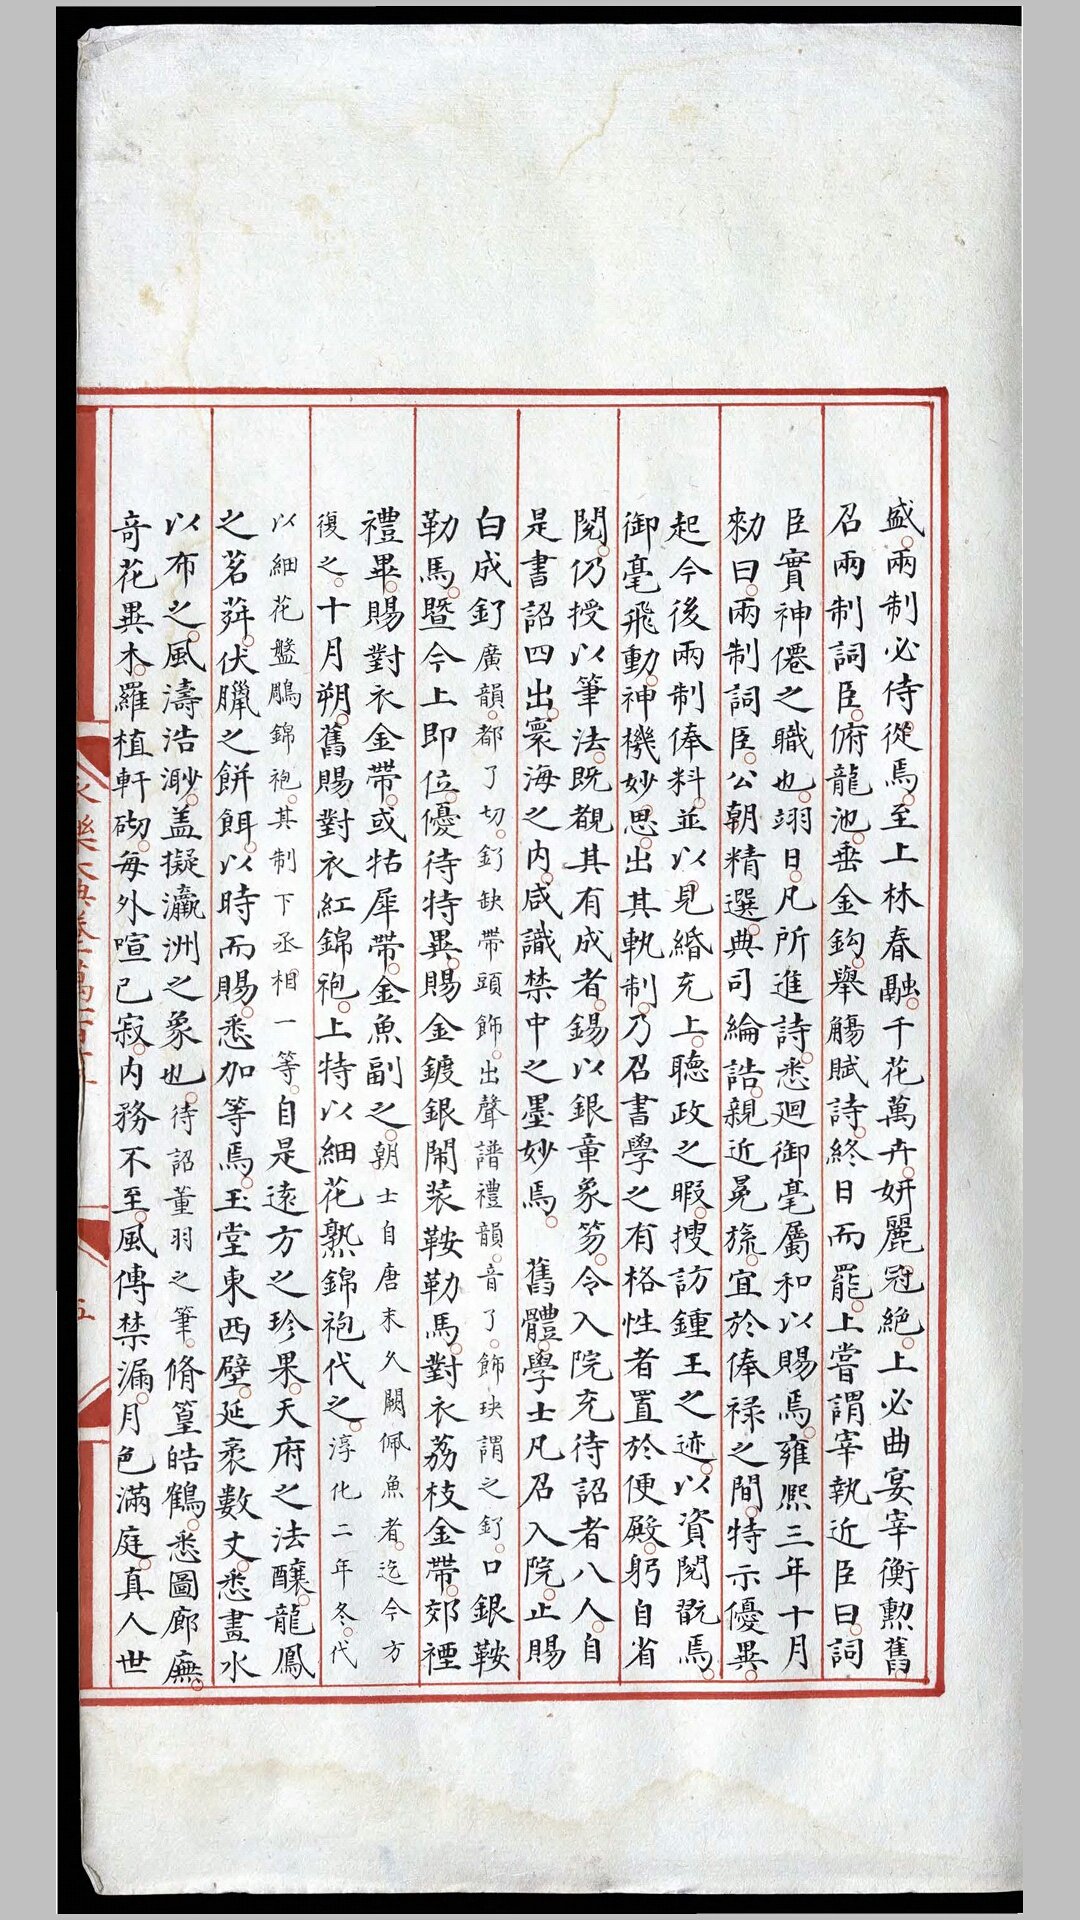 盛兩制必侍從焉至上林春融千花萬卉妍麗冠絶上必曲宴宰衡勲舊
召兩制詞臣俯龍池垂金鈎舉觴賦詩終日而罷上嘗謂宰執近臣曰詞
臣實神僊之職也翊日凡所進詩悉廻御毫屬和以賜焉雍熈三年十月
勑曰兩制詞臣公朝精選典司綸誥親近冕旒宜於俸禄之間特示優異
起今後兩制俸料並以見緡充上聽政之暇搜訪鍾王之迹以資閱翫焉
御毫飛動神機妙思出其軌制乃召書學之有格性者置於便殿躬自省
閱仍授以筆法既覩其有成者錫以銀章象笏令入院充待詔者八人自
是書詔四出寰海之内咸識禁中之墨妙焉　舊體學士凡召入院止賜
白成釕廣韻都了切釕缺帶頭飾出聲譜禮韻音了飾玦謂之釕口銀鞍
勒馬暨今上即位優待特異賜金鍍銀閙装鞍勒馬對衣荔枝金帶郊禋
禮畢賜對衣金帶或牯犀帶金魚副之朝士自唐末久闕佩魚者迄今方
復之十月朔舊賜對衣紅錦袍上特以細花熟錦袍代之淳化二年冬代
以細花盤鵰錦袍其制下丞相一等自是逺方之珍果天府之法釀龍鳳
之茗荈伏臘之餅餌以時而賜悉加等焉玉堂東西壁延袤數丈悉畫水
以布之風濤浩渺盖擬瀛洲之象也待詔董羽之筆脩篁皓鶴悉圖廊廡
奇花異木羅植軒砌每外喧已寂内務不至風傳禁漏月色滿庭真人世
五